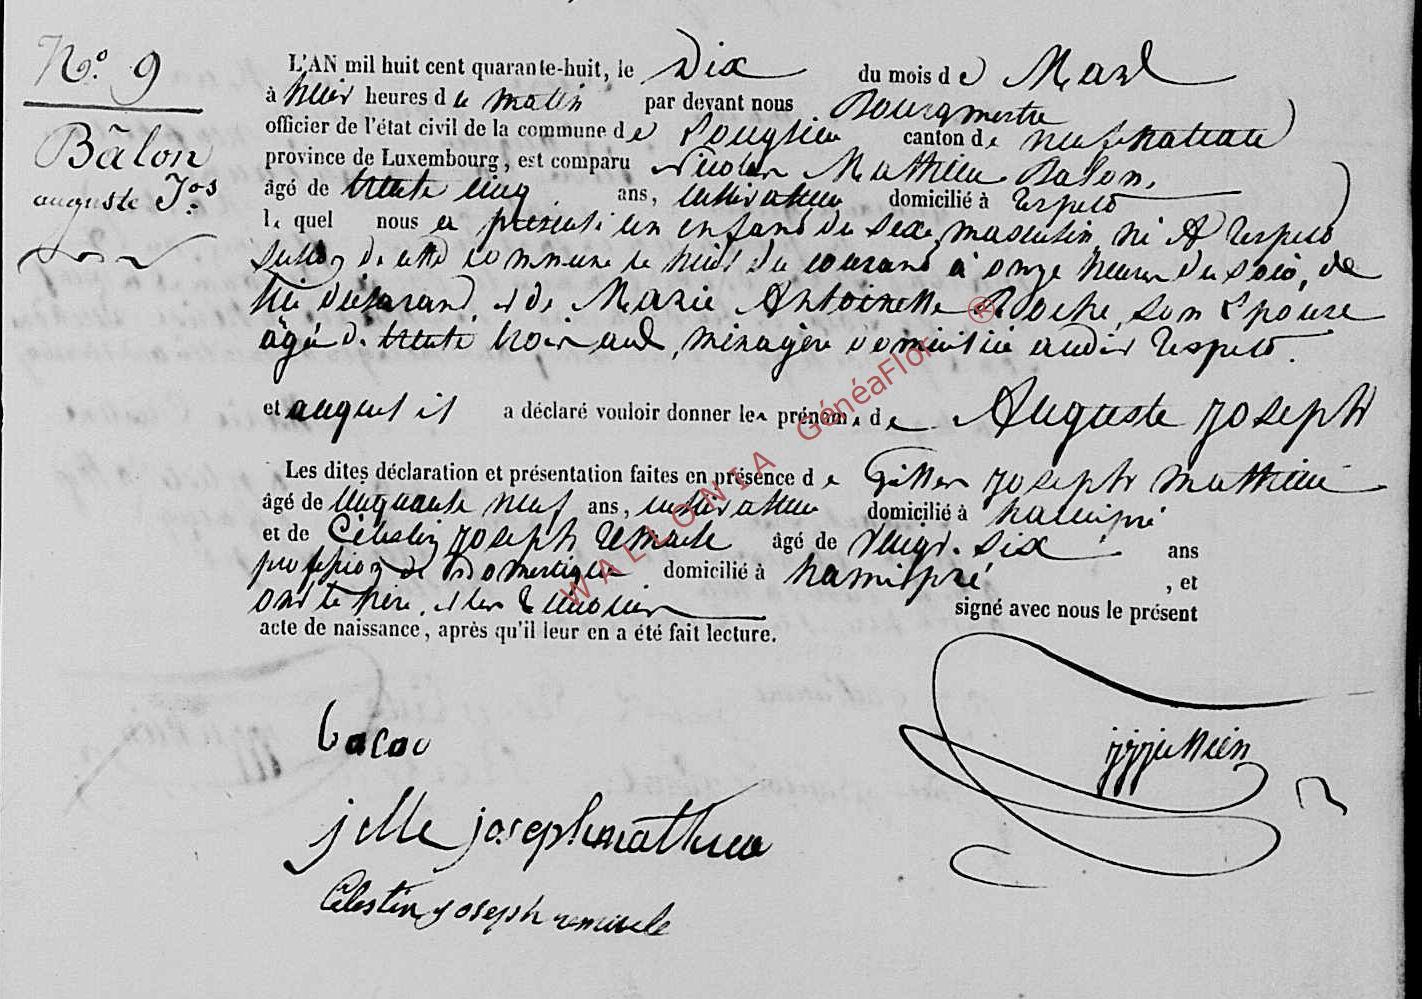 N.º 9
Bâlon
auguste Jos
L'AN mil huit cent quarante-huit, le Dix du mois de Mars
à huit heures du matin par devant nous Bourgmestre
officier de l'état civil de la commune de canton de neufchateau
province de Luxembourg, est comparu Nicolas Mathieu Balon,
âgé de trente cinq ans, cultivateur domicilié à Respelt
lequel nous a présenté un enfant du sexe masculin, né à Respelt
section de cette commune le huit du courant à onze heures du soir, de
lui déclarant, et de Marie Antoinette Roche, son Epouse
âgée de trente trois ans, ménagère domiciliée audit Respelt.
et auquel il a déclaré vouloir donner les prénoms de Auguste Joseph
Les dites déclaration et présentation faites en présence de Gilles Joseph Mathieu
âgé de cinquante neuf ans, cultivateur domicilié à hamipré
et de Célestin Joseph Remacle âgé de vingt-six ans
profession de Domestique domicilié à hamipré, et
ont le père et les témoins signé avec nous le présent
acte de naissance, après qu'il leur en a été fait lecture.
jille joseph mathieu
Celestin joseph remacle
WALLONIA GénéaFlor ®